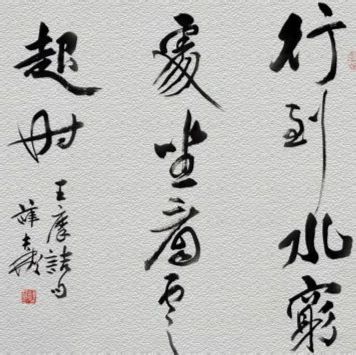 行到水窮
處坐看雲
起時
王摩詰句